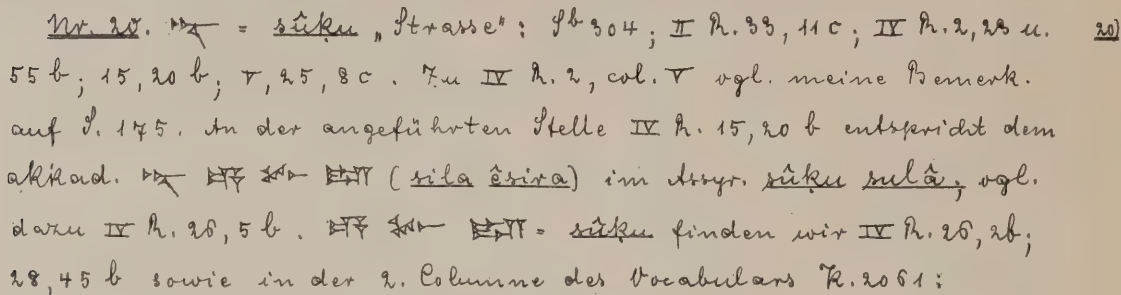 Nr. 20. 𒋻 = sûḳu „Strasse“: Sb 304; II R. 33, 11 c; IV R. 2, 23 u. 20)
55 b; 15, 20 b; V, 25, 8 c. Zu IV R. 2, col. V vgl. meine Bemerk.
auf S. 175. An der angeführten Stelle IV R. 15, 20 b entspricht dem
akkad. 𒋻 (sila êsira) im Assyr. sûḳu sulâ; vgl.
dazu IV R. 26, 5 b. = sûḳu finden wir IV R. 26, 2b;
28, 45 b sowie in der 2. Columne des Vocabulars K. 2061: